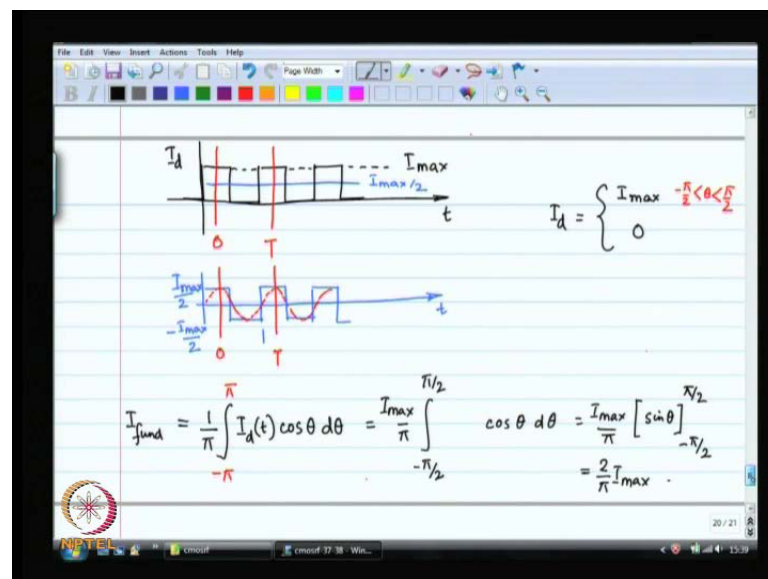 File Edit View Insert Actions Tools Help
Page Width
B I
I_d
I_max
I_max/2
t
0 T
I_d = { I_max -π/2 < θ < π/2
0
I_max/2
-I_max/2
t
0 T
I_fund = 1/π ∫_{-π}^{π} I_d(t) cos θ dθ = I_max/π ∫_{-π/2}^{π/2} cos θ dθ = I_max/π [sin θ]_{-π/2}^{π/2}
= 2/π I_max .
20 / 21
NPTEL
cmosrf
cmosrf-37-38 - Win...
15:39